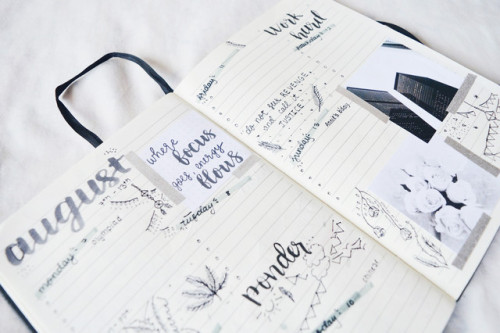 august
monday
where
focus
goes, energy
flows
tuesday
8
ponder
10
work
hard
friday
do not for REVENGE
and call it
JUSTICE
sunday